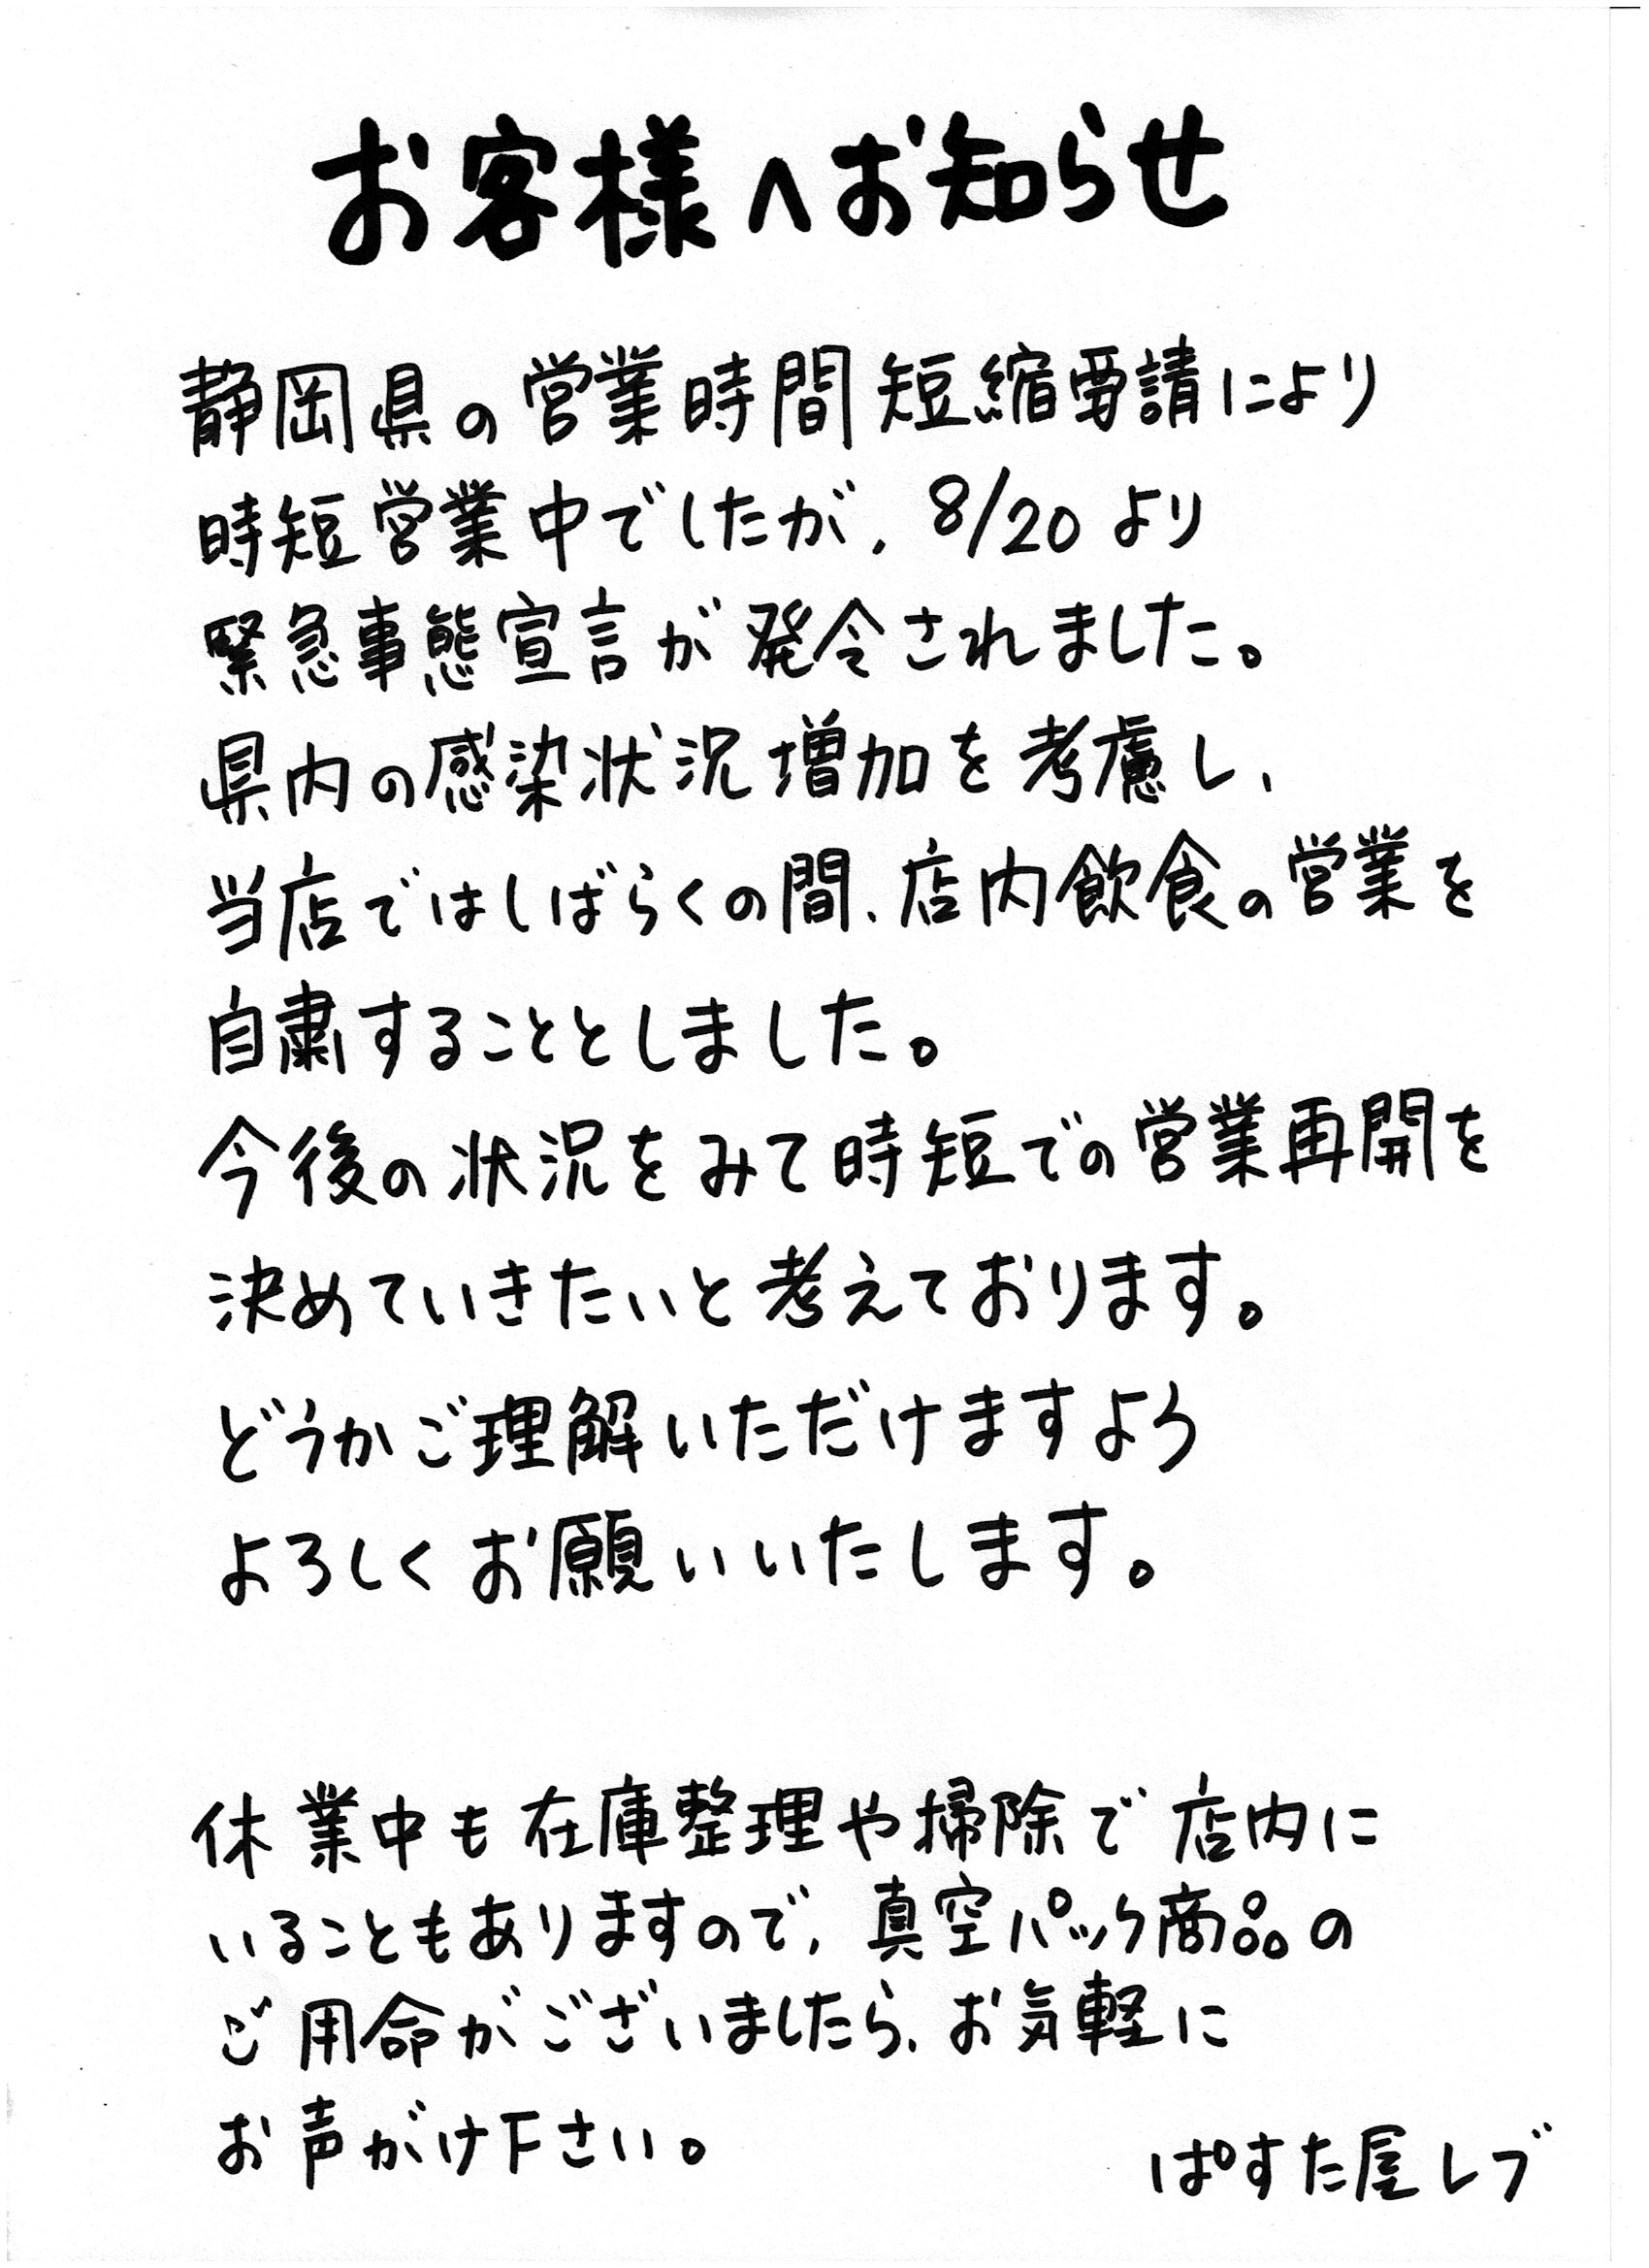 お客様へお知らせ
静岡県の営業時間短縮要請により
時短営業中でしたが、8/20より
緊急事態宣言が発令されました。
県内の感染状況増加を考慮し、
当店ではしばらくの間、店内飲食の営業を
自粛することとしました。
今後の状況をみて時短での営業再開を
決めていきたいと考えております。
どうかご理解いただけますよう
よろしくお願いいたします。
休業中も在庫整理や掃除で店内に
いることもありますので、真空パック商品の
ご用命がございましたら、お気軽に
お声がけ下さい。
ぱすた屋レブ